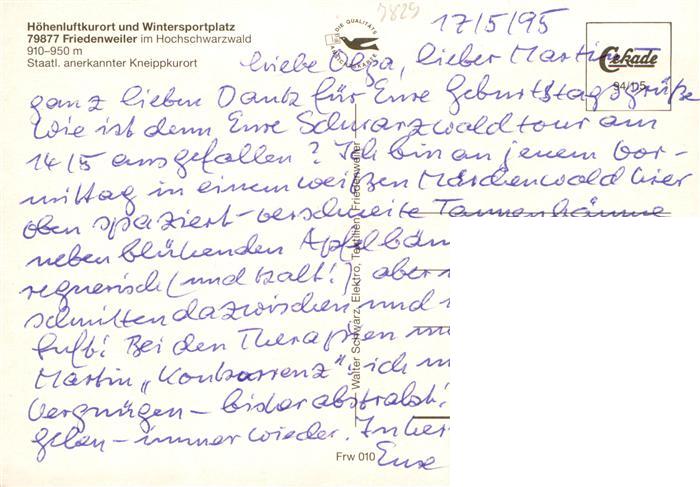 Höhenluftkurort und Wintersportplatz
79877 Friedenweiler im Hochschwarzwald
910–950 m
Staatl. anerkannter Kneippkurort
DIE QUALITÄTS
7829
17/5/95
Cekade
94/05
Liebe Olga, lieber Martin
ganz lieben Dank für Eure Geburtstagsgrüße
Wie ist denn Eure Schwarzwaldtour am
14/5 ausgefallen? Ich bin an jenem Vor-
mittag in einem weißen Märchenwald hier
oben spaziert – verschneite Tannenbäume
neben blühenden
regnerisch (und kalt!) aber
schnitten dazwischen und
Luft! Bei den Therapien
Martin „Konkurrenz" ich
Vergnügen –
geben – immer wieder.
Eure
Walter Schwarz, Elektro, Textilien, Friedenweiler
Frw 010